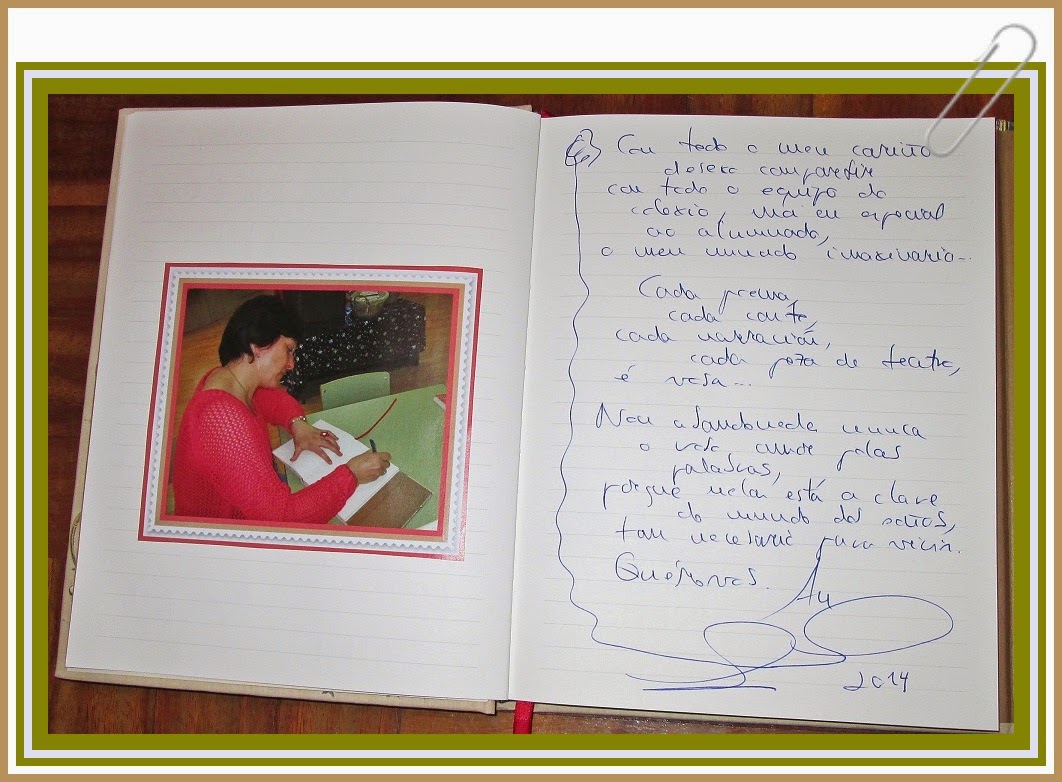 Con todo o meu cariño
desexo compartir
con todo o equipo do
colexio, en especial
ao alumnado,
o meu mundo imaxinario...
Cada poema,
cada conto,
cada narración,
cada peza de teatro,
é vosa...
Non abandonedes nunca
o voso amor polas
palabras,
porque nelas está a clave
do mundo dos soños,
tan necesario para vivir.
Quérovos.
2014